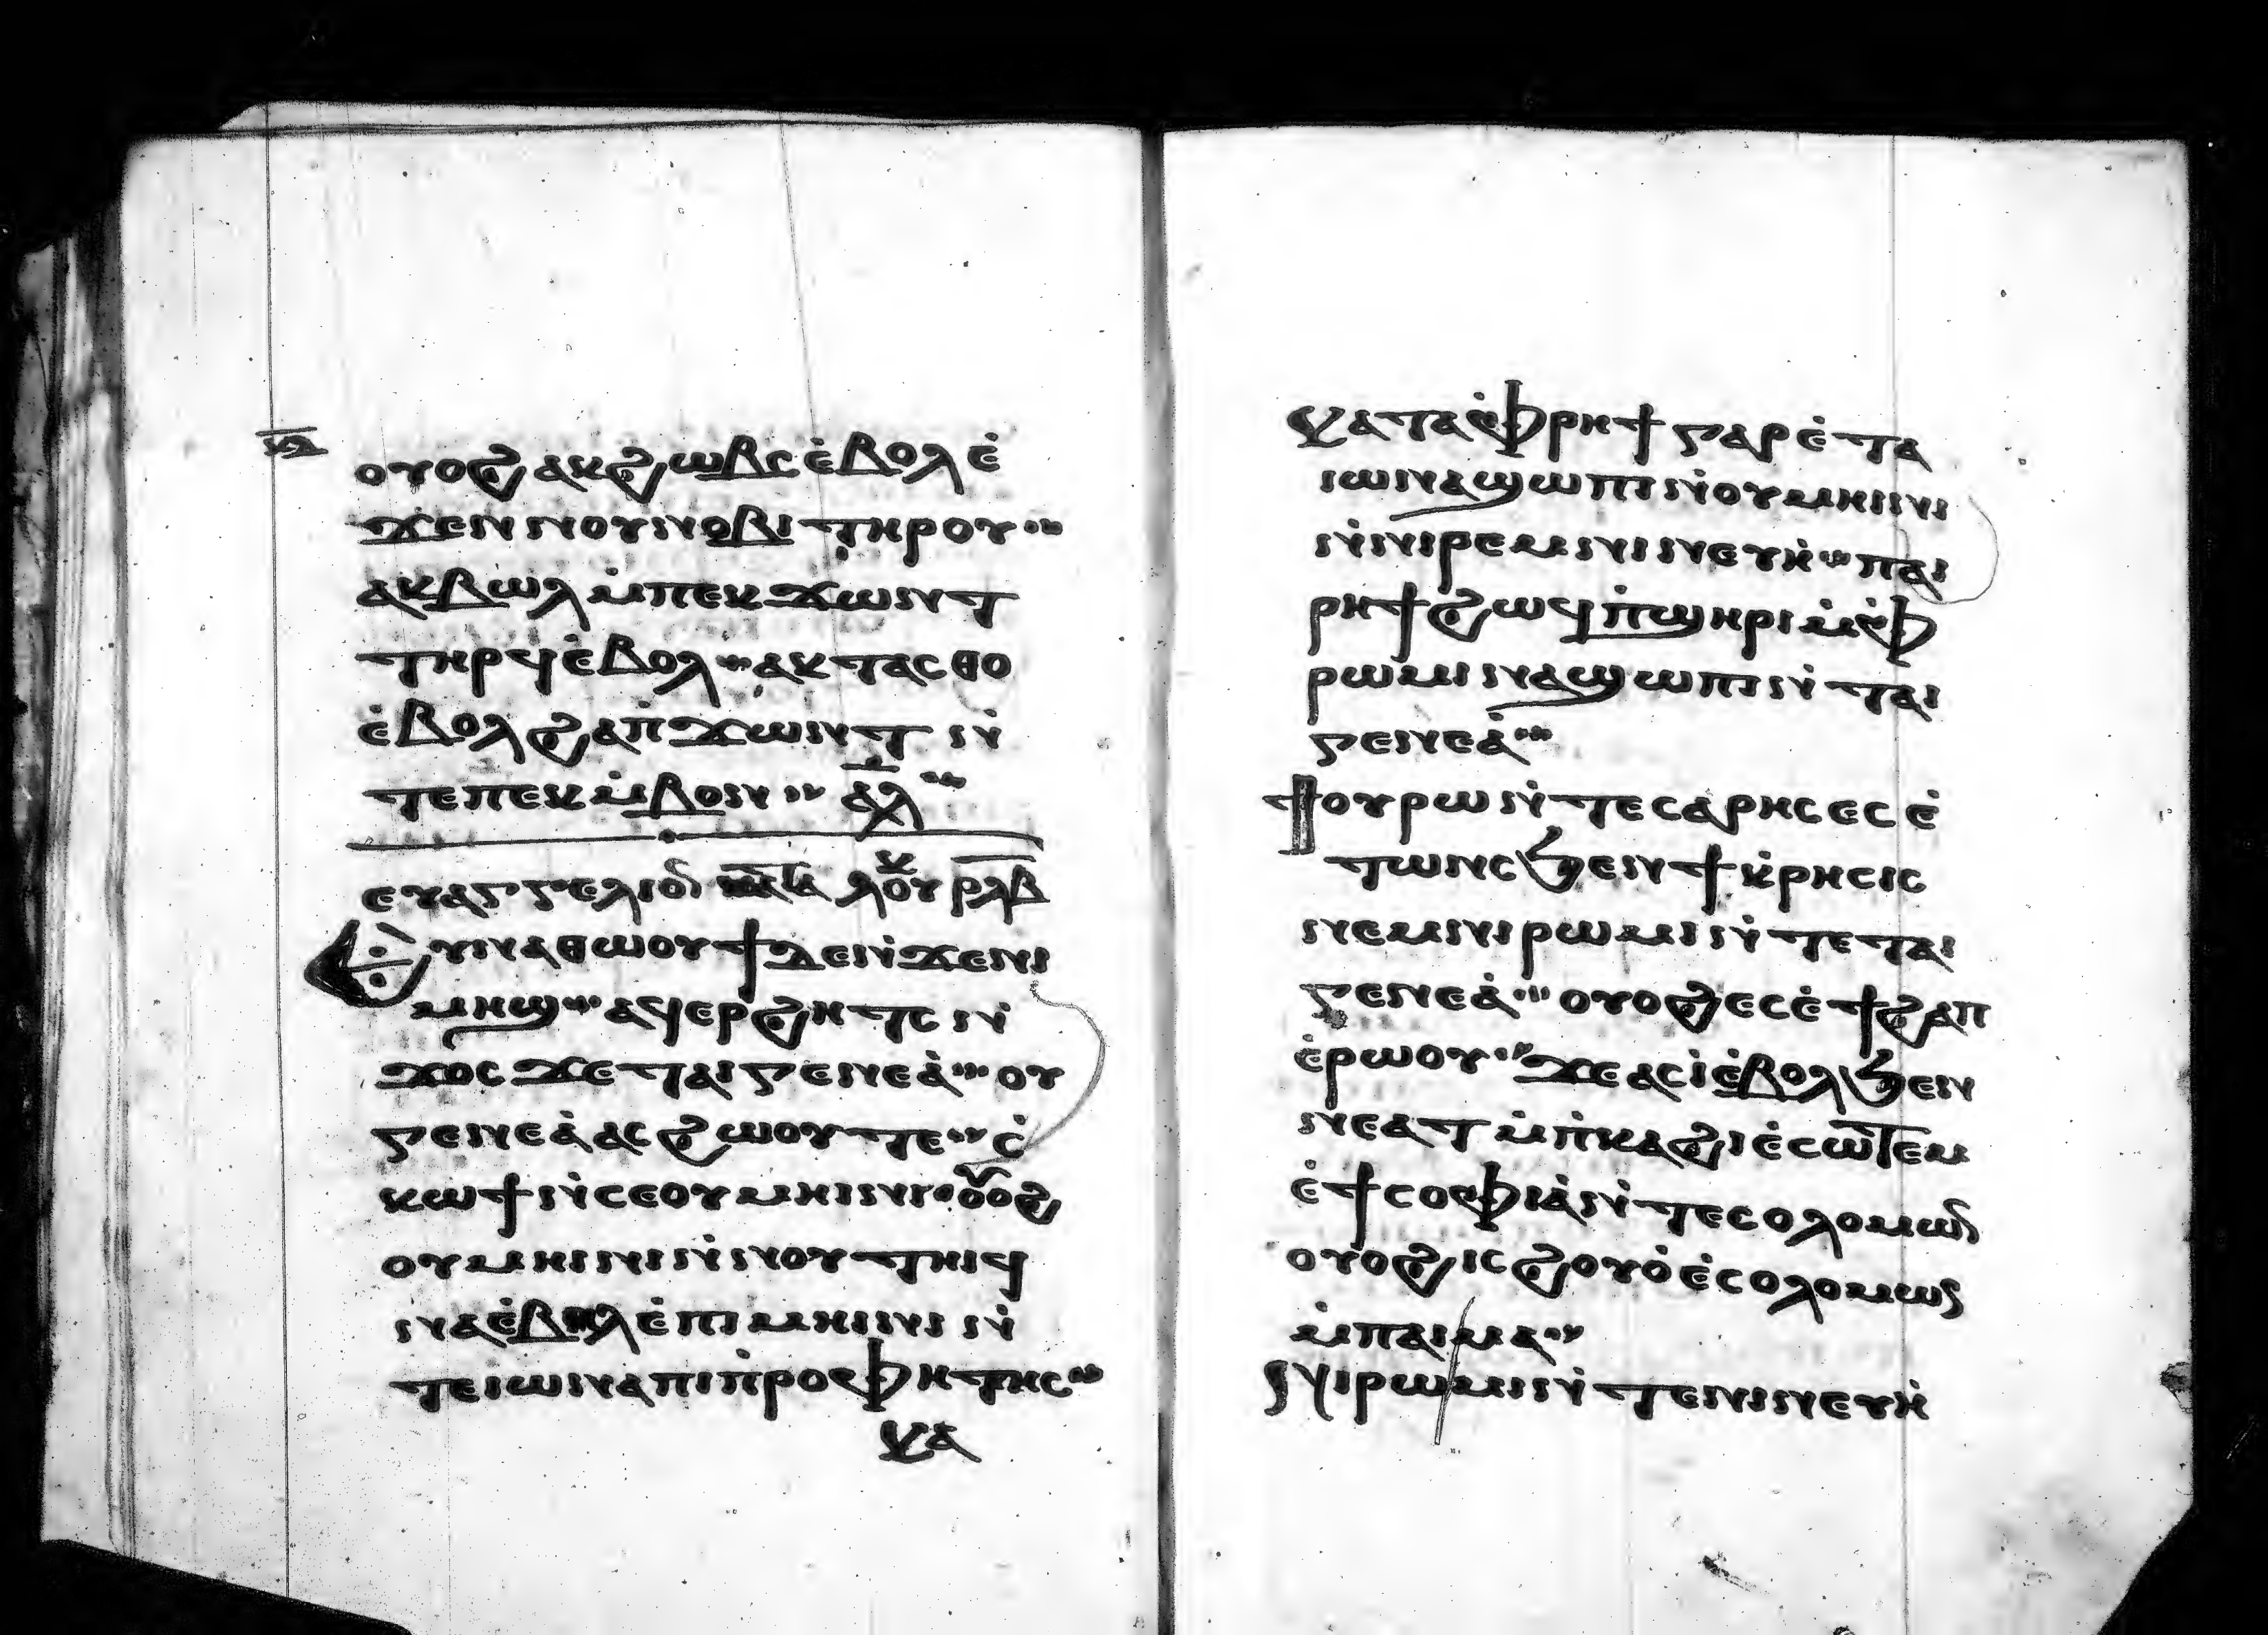 ⲛ̅ⲍ̅
ⲟⲩⲟϩ ⲁⲕϩⲱⲃⲥ ⲉ̇ⲃⲟⲗ ⲉ̇
ϫⲉⲛ ⲛⲟⲩⲛⲟⲃⲓ ⲧⲏⲣⲟⲩ
ⲁⲕⲃⲱⲗ ⲙ̇ⲡⲉⲕϫⲱⲛⲧ
ⲧⲏⲣϥ ⲉ̇ⲃⲟⲗ ⲁⲕⲧⲁⲥⲑⲟ
ⲉ̇ⲃⲟⲗ ϩⲁ ⲡ̇ϫⲱⲛⲧ ⲛ̇
ⲧⲉ ⲡⲉⲕⲙ̇ⲃⲟⲛ ⲁ̅ⲗ̅
ⲉⲩⲁⲅⲅⲉⲗⲓⲟ ⲗⲟⲩⲕ ⲣ̅ⲗ̅ⲃ̅
Ⲉⲩⲛⲁⲑⲱⲟⲩϯ ⲇⲉ ⲛ̇ϫⲉ ⲛⲓ
ⲙⲏϣ ⲁϥⲉⲣϩⲏⲧⲥ ⲛ̇
ϫⲟⲥ ϫⲉ ⲧⲁⲓⲅⲉⲛⲉⲁ̇ ⲟⲩ
ⲅⲉⲛⲉⲁ̇ ⲁⲥϩⲱⲟⲩ ⲧⲉ ⲥ̇
ⲕⲱϯ ⲛ̇ⲥⲉ ⲟⲩⲙⲏⲓⲛⲓ ⲟⲩⲟϩ
ⲟⲩⲙⲏⲓⲛⲓ ⲛ̇ⲛⲟⲩⲧⲏⲓϥ
ⲛⲁⲥ̇ ⲉ̇ⲃⲏⲗ ⲉ̇ⲡⲓⲙⲏⲓⲛⲓ ⲛ̇
ⲧⲉ ⲓⲱⲛⲁ ⲡⲓⲡ̇ⲣⲟⲫⲏⲧⲏⲥ
ⲕⲁ
ⲕⲁⲧⲁ ⲫ̇ⲣⲏϯ ⲅⲁⲣ ⲉ̇ⲧⲁ
ⲓⲱⲛⲁ ϣⲱⲡⲓ ⲛ̇ⲟⲩⲙⲏⲓⲛⲓ
ⲛ̇ⲛⲓⲣⲉⲙⲛⲓⲛⲉⲩⲏ̇ ⲡⲁⲓ
ⲣⲏϯ ϩⲱϥ ⲡ̇ϣⲏⲣⲓ ⲙ̇ⲫ̇
ⲣⲱⲙⲓ ⲛⲁϣⲱⲡⲓ ⲛ̇ⲧⲁⲓ
ⲅⲉⲛⲉⲁ̇
Ϯⲟⲩⲣⲱ ⲛ̇ⲧⲉ ⲥⲁⲣⲏⲥ ⲉⲥⲉ̇
ⲧⲱⲛⲥ ϧⲉⲛ ϯⲕ̇ⲣⲏⲥⲓⲥ
ⲛⲉⲙ ⲛⲓⲣⲱⲙⲓ ⲛ̇ⲧⲉ ⲧⲁⲓ
ⲅⲉⲛⲉⲁ̇ ⲟⲩⲟϩ ⲉⲥⲉ̇ϯϩⲁⲡ
ⲉ̇ⲣⲱⲟⲩ ϫⲉ ⲁⲥⲓ̇ ⲉ̇ⲃⲟⲗ ϧⲉⲛ
ⲛⲉ ⲁⲧ ⲙ̇ⲡ̇ⲕⲁϩⲓ ⲉ̇ⲥⲱⲧⲉⲙ
ⲉ̇ϯⲥⲟⲫⲓⲁ̇ ⲛ̇ⲧⲉ ⲥⲟⲗⲟⲙⲱⲛ
ⲟⲩⲟϩ ⲓⲥ ϩⲟⲩⲟ̇ ⲉ̇ⲥⲟⲗⲟⲙⲱⲛ
ⲙ̇ⲡⲁⲓⲙⲁ
Ⲛⲓⲣⲱⲙⲓ ⲛ̇ⲧⲉ ⲛⲓⲛⲉⲩⲏ̇